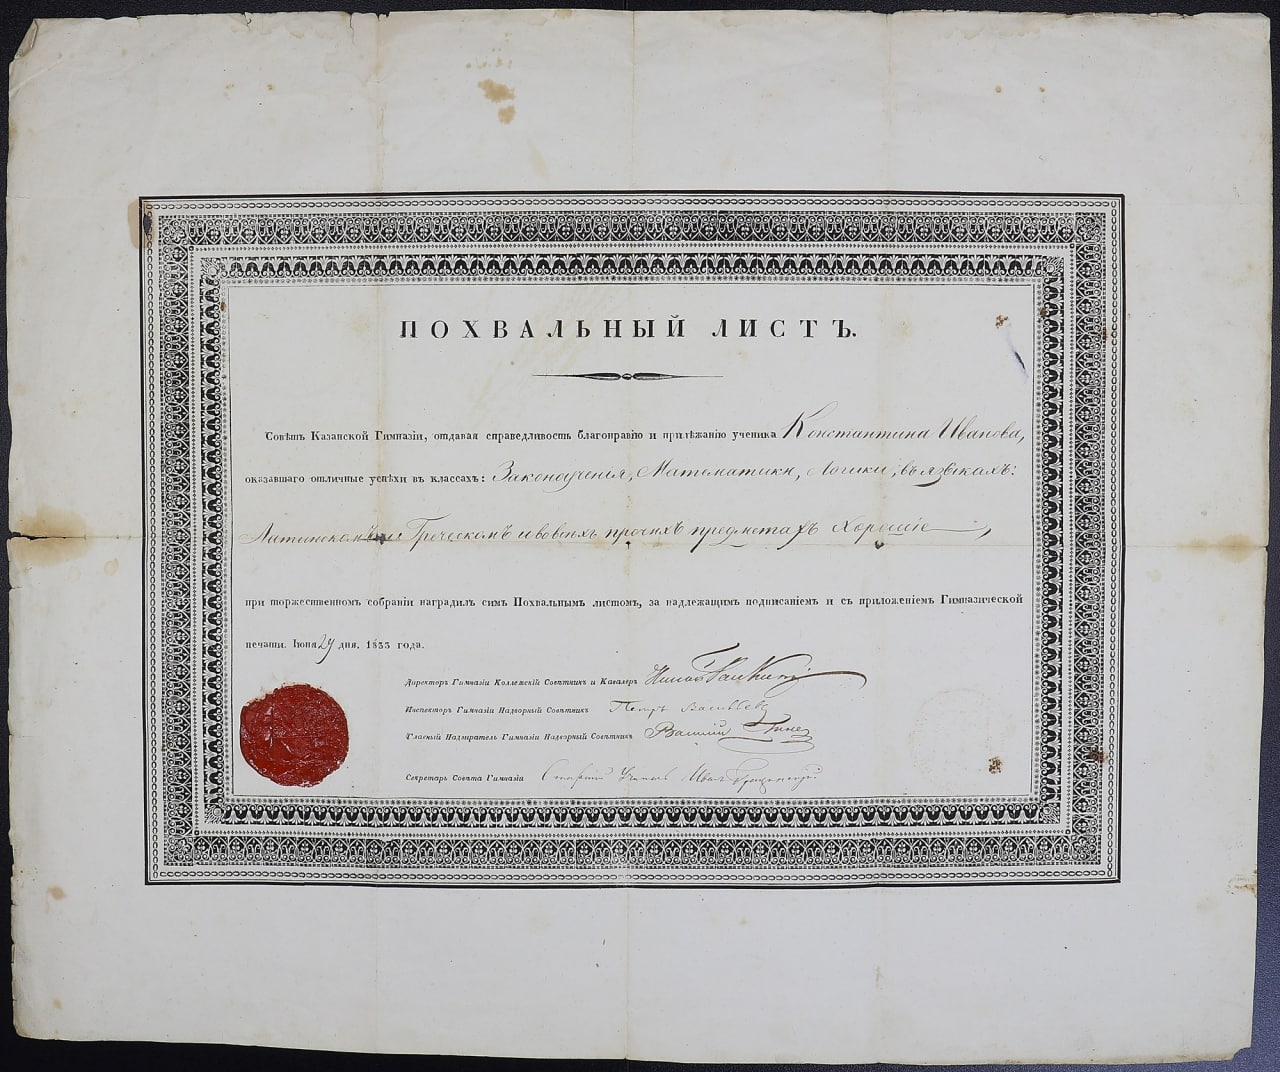 ПОХВАЛЬНЫЙ ЛИСТЪ.
Совѣтъ Казанской Гимназіи, отдавая справедливость благонравію и прилѣжанію ученика Константина Иванова,
оказавшаго отличные успѣхи въ классахъ: Законоученія, Математики, Логики, въ языкахъ:
Латинскомъ и Греческомъ и во всѣхъ прочихъ предметахъ Хорошіе,
при торжественномъ собраніи наградилъ симъ Похвальнымъ листомъ, за надлежащимъ подписаніемъ и съ приложеніемъ Гимназической
печати. Іюня 29 дня, 1833 года.
Директоръ Гимназіи Коллежскій Совѣтникъ и Кавалеръ
Инспекторъ Гимназіи Надворный Совѣтникъ Петръ Васильевъ
Главный Надзиратель Гимназіи Надворный Совѣтникъ
Секретарь Совѣта Гимназіи Старшій Учитель Иванъ